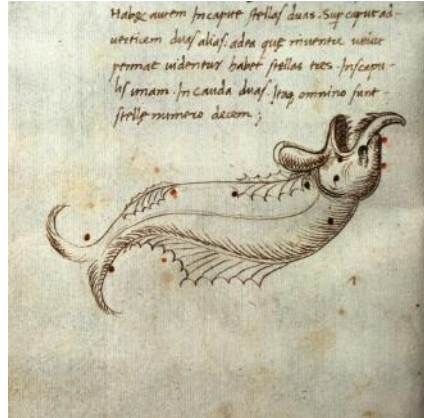 Habet autem In capite stellas duas. Sup caput ad-
verticem duas alias. adea que inventre velut
pennae videntur habet stellas tres. Inscapu-
lis unam. In cauda duas. Itaq omnino sunt
stelle numero decem ;